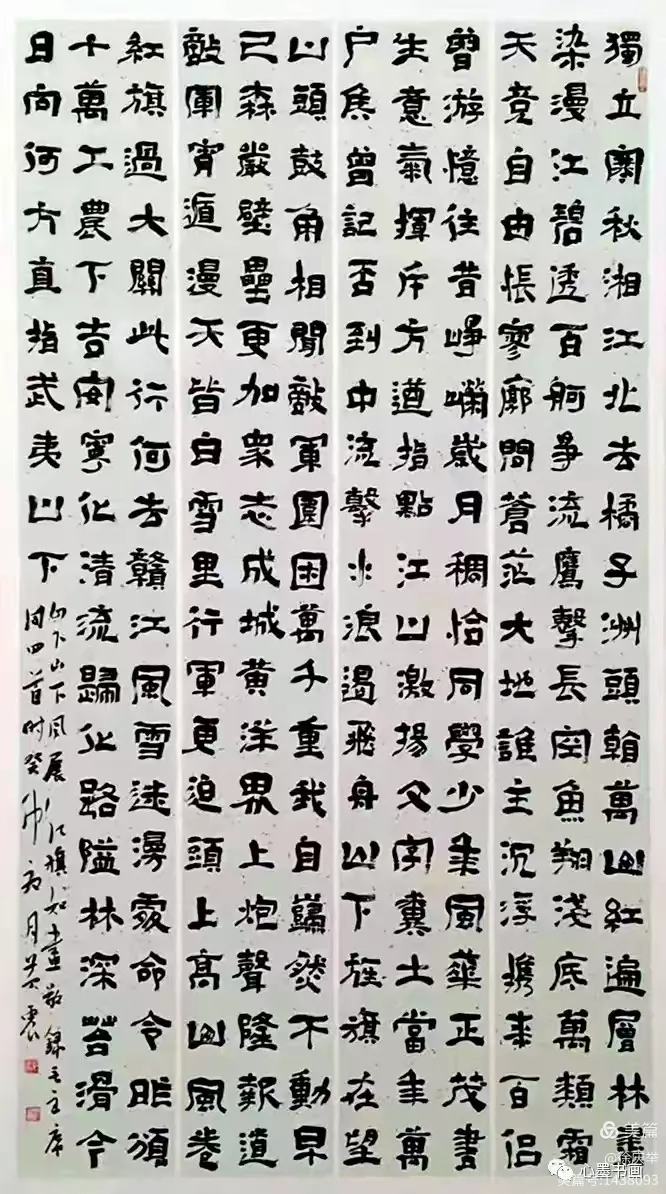 獨立寒秋湘江北去橘子洲頭看萬山紅遍層林盡
染漫江碧透百舸爭流鷹擊長空魚翔淺底萬類霜
天竟自由悵寥廓問蒼茫大地誰主沉浮攜來百侶
曾游憶往昔崢嶸歲月稠恰同學少年風華正茂書
生意氣揮斥方遒指點江山激揚文字糞土當年萬
户侯曾記否到中流擊水浪遏飛舟山下旌旗在望
山頭鼓角相聞敵軍圍困萬千重我自巋然不動早
已森嚴壁壘更加衆志成城黃洋界上炮聲隆報道
敵軍宵遁漫天皆白雪里行軍更迫頭上高山風卷
紅旗過大關此行何去贛江風雪迷漫處命令昨頒
十萬工農下吉安寧化清流歸化路隘林深苔滑今
日向何方直指武夷山下
山下山下風展紅旗如畫敬錄毛主席
詞四首時癸卯月震
美篇
@徐庆举
心墨书画
美篇号:1438093